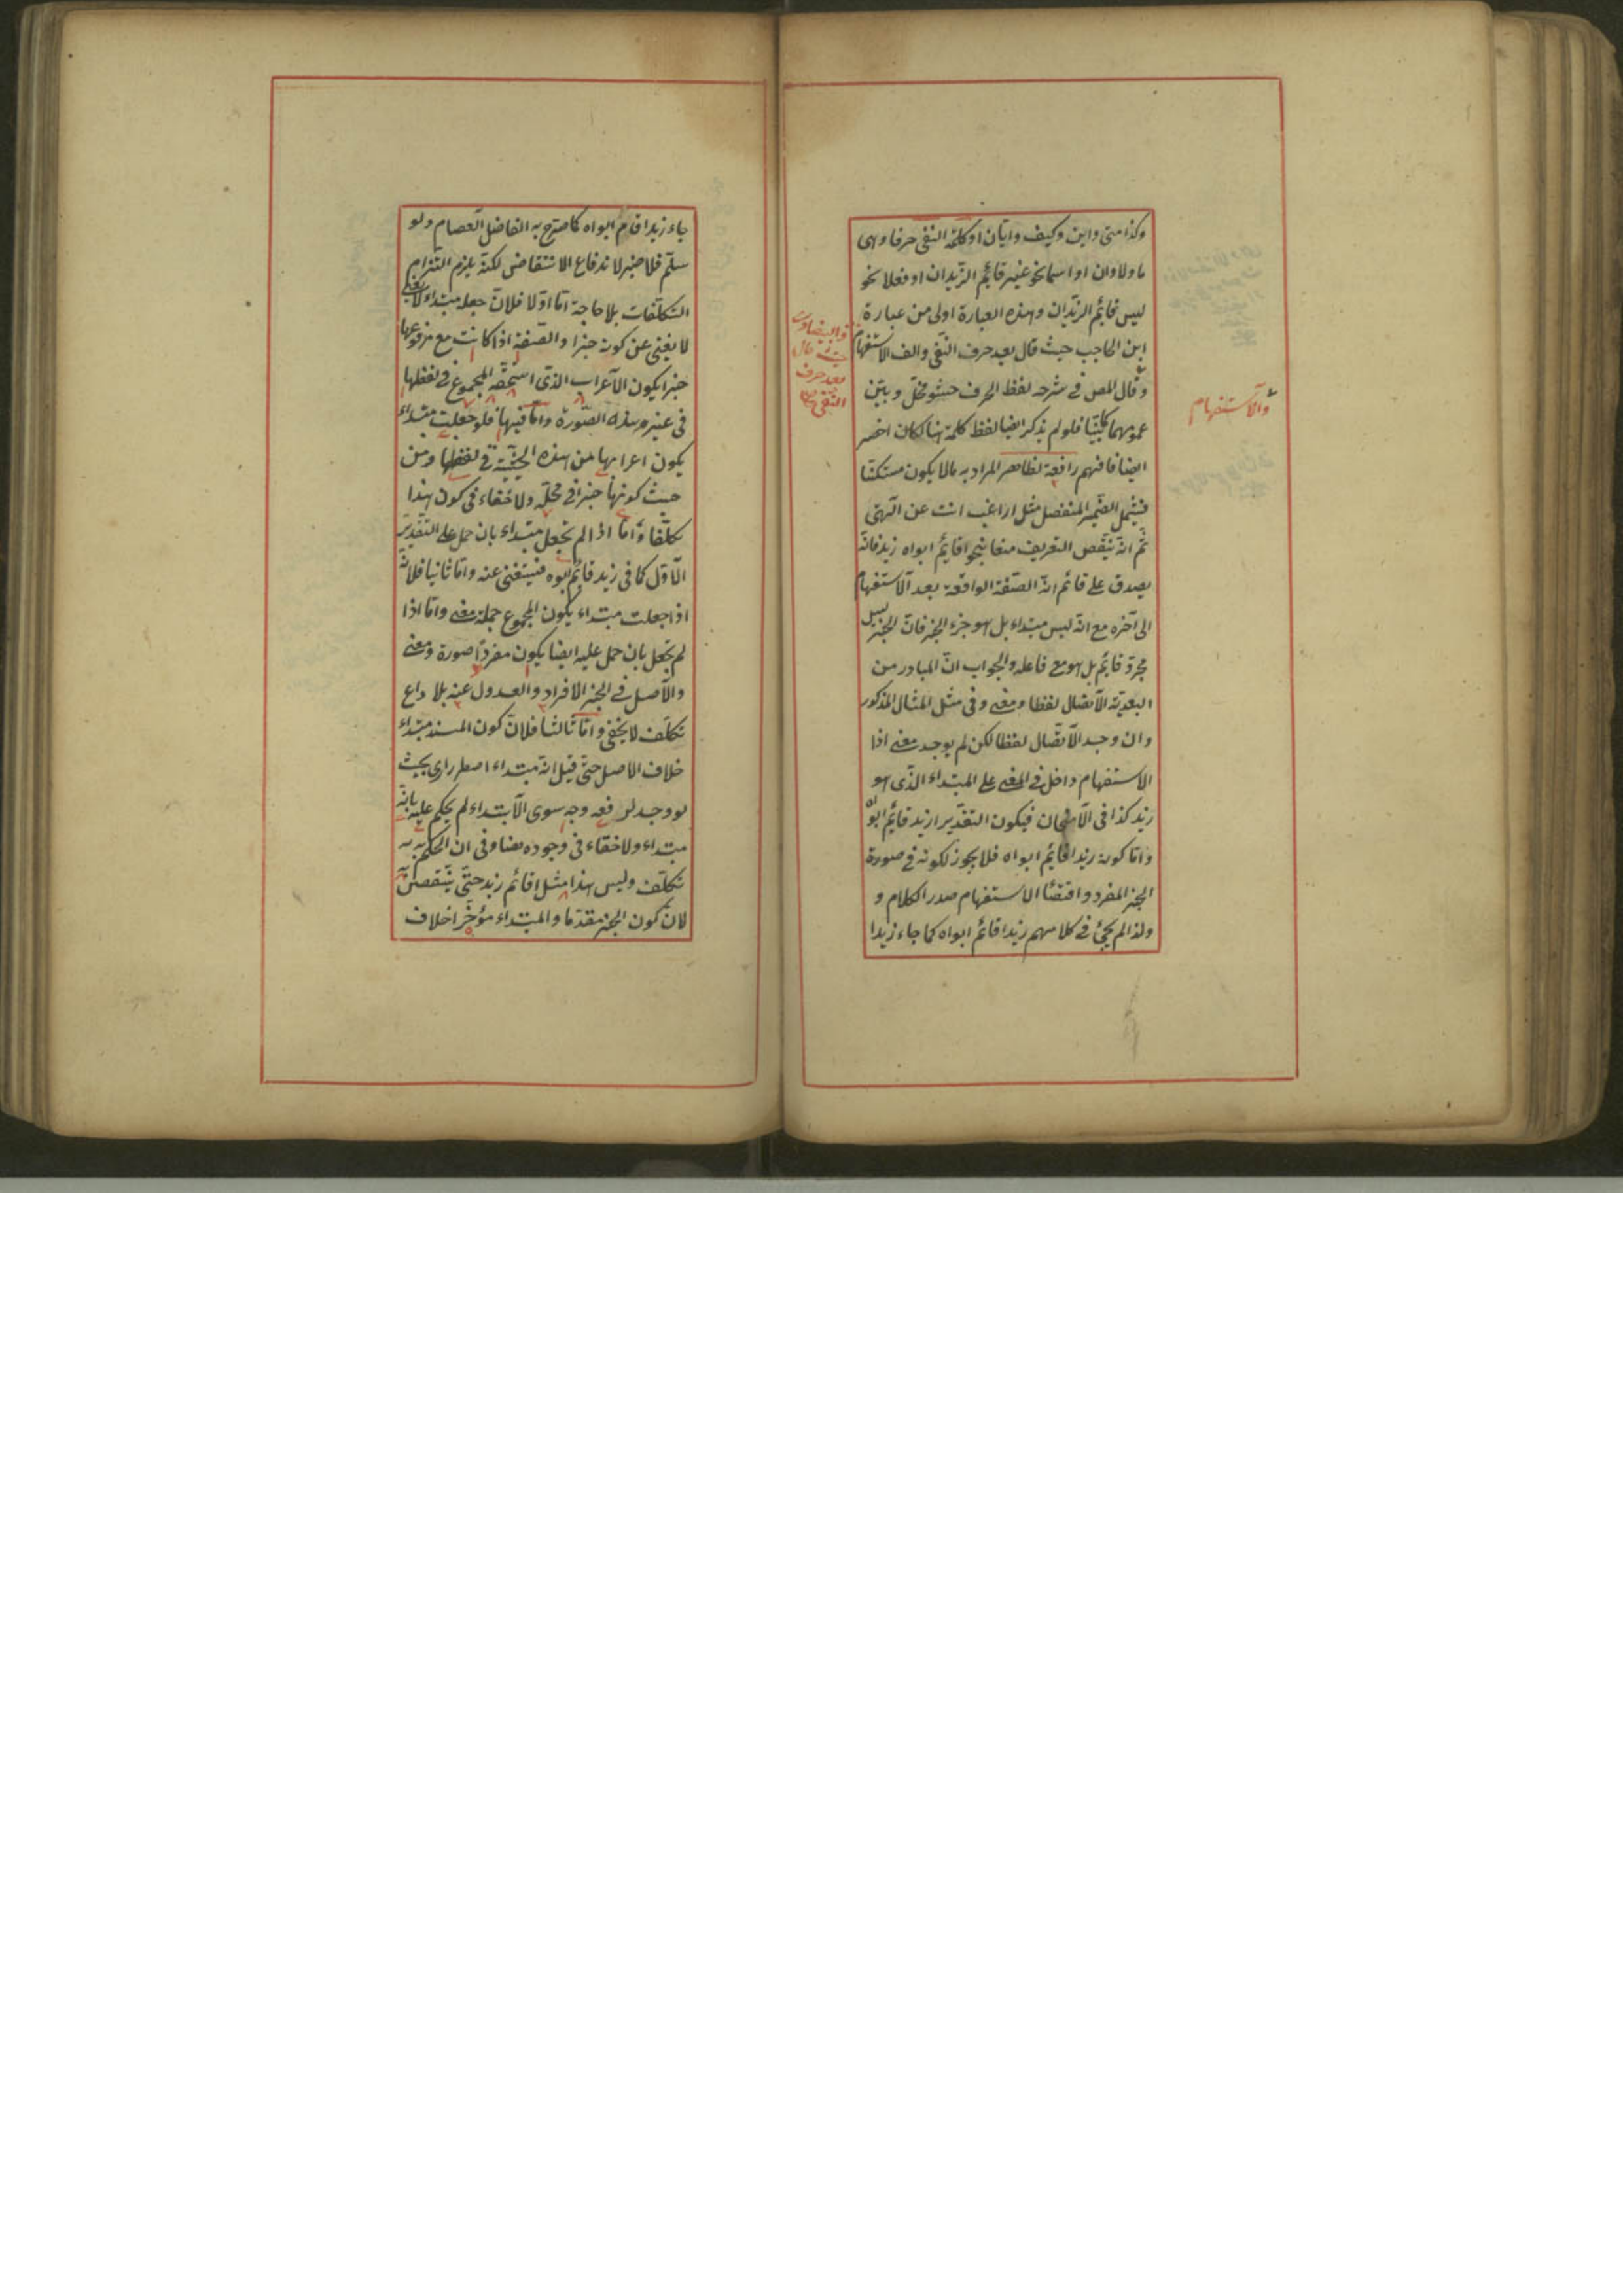 وكذا متى واين وكيف وايان او كلمة النفى حرفا وهى
ما ولا وان او اسما نحو غير قائم الزيدان او فعلا نحو
ليس قائم الزيدان وهذه العبارة اولى من عبارة
ابن الحاجب حيث قال بعد حرف النفى والف الاستفهام
وقال المص فى شرحه لفظ الحرف حشو مخل وبين
عمومهما فلو لم يذكر ايضا لفظ كلمة هنا لكان اخصر
ايضا فافهم رافعة لظاهر المراد به مالا يكون مستكنا
فيشمل الضمير المنفصل مثل اراغب انت عن الهتى
ثم انه ينتقض التعريف منعا بنحو اقائم ابواه زيد فانه
يصدق على قائم انه الصفة الواقعة بعد الاستفهام
الى آخره مع انه ليس مبتداء بل هو جزء الخبر فان الخبر ليس
مجرد قائم بل هو مع فاعله والجواب ان المتبادر من
البعدية الاتصال لفظا ومعنى وفى مثل المثال المذكور
وان وجد الاتصال لفظا لكن لم يوجد معنى اذا
الاستفهام داخل فى المعنى على المبتداء الذى هو
زيد كذا فى الامتحان فيكون التقدير ازيد قائم ابوه
واما كونه زيد اقائم ابواه فلا يجوز لكونه فى صورة
الخبر المفرد واقتضا الاستفهام صدر الكلام و
ولذا لم يجئ فى كلامهم زيد اقائم ابواه كما جاء زيد ا
والاستفهام
والبيضاوى
حيث قال
بعد حرف
النفى
جاء زيد اقام ابواه كما صرح به الفاضل العصام ولو
سلم فلا ضير لاندفاع الانتقاض لكنه يلزم التزام
التكلفات بلا حاجة اما اولا فلان جعله مبتداء
لا يغنى عن كونه خبرا والصفة اذا كانت مع مرفوعها
خبرا يكون الاعراب الذى استحقه المجموع فى لفظها
فى غير هذه الصورة واما فيها فلو جعلت مبتداء
يكون اعرابها من هذه الحيثية فى لفظها ومن
حيث كونها خبرا فى محله ولا خفاء فى كون هذا
تكلفا واما اذا لم تجعل مبتداء بان حمل على التقدير
الاول كما فى زيد قائم ابوه فيستغنى عنه واما ثانيا فلانه
اذا جعلت مبتداء يكون المجموع جملة معنى واما اذا
لم تجعل بان حمل عليه ايضا يكون مفردا صورة ومعنى
والاصل فى الخبر الافراد والعدول عنه بلا داع
تكلف لا يخفى واما ثالثا فلان كون المسند مبتداء
خلاف الاصل حتى قيل انه مبتداء اضطرارى بحيث
لو وجد لرفعه وجه سوى الابتداء لم يحكم عليه بانه
مبتداء ولا خفاء فى وجوده هنا وفى ان الحكم به
تكلف وليس هذا مثل اقائم زيد حتى ينتقض
لان كون الخبر مقدما والمبتداء مؤخرا خلاف